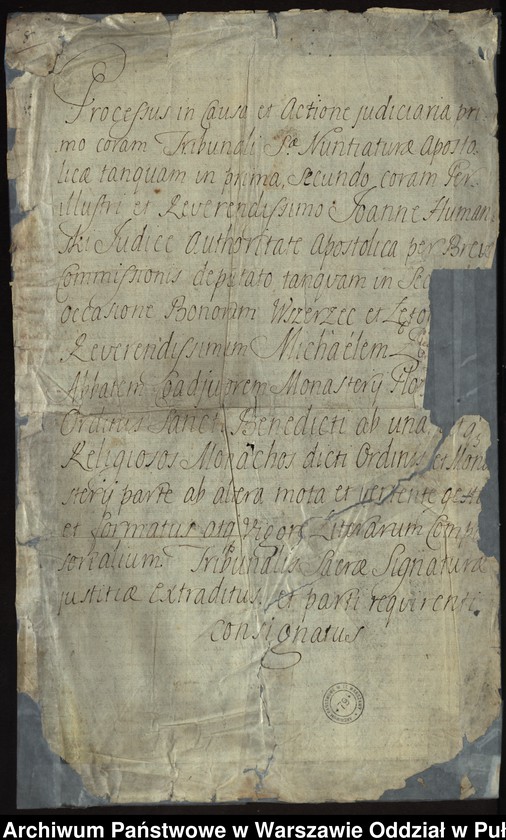 Processus in Causa et Actione judiciaria pri
mo coram Tribunali Sæ Nuntiaturæ Aposto
licæ tanquam in prima, Secundo coram Per
illustri et Reverendissimo Joanne Human
ski Judice Authoritate Apostolica per Breve
Commissionis deputato tanquam in Sec
occasione Bonorum Wierzec et
Reverendissimum Michaëlem
Abbatem Coadjutorem Monasterij Plo
Ordinis Sancti Benedicti ab una
Religiosos Monachos dicti Ordinis et Mona
sterij parte ab altera mota et vertente
et formatus atq Vigore Litterarum Comp
sorialium Tribunalis Sacræ Signaturæ
justitiæ extraditus et parti requirenti
consignatus
Archiwum Państwowe w Warszawie Oddział w Puł